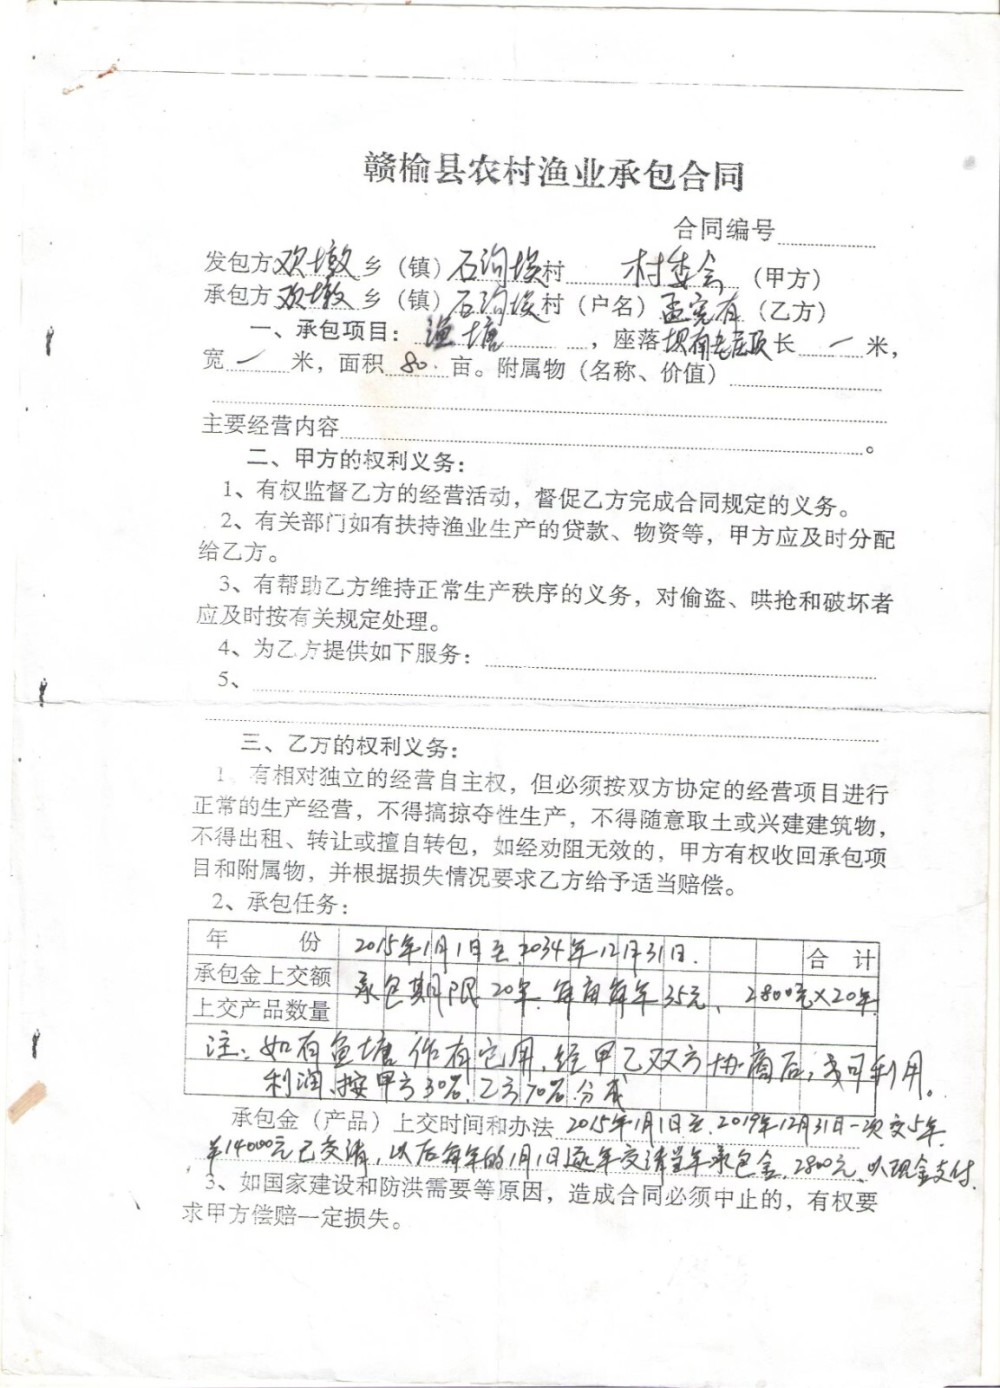 赣榆县农村渔业承包合同
合同编号
发包方欢墩乡（镇）石沟埃村 村委会（甲方）
承包方欢墩乡（镇）石沟埃村（户名）孟宪有（乙方）
一、承包项目：渔塘，座落坝南 长一米，
宽一米，面积80.亩。附属物（名称、价值）
主要经营内容。
二、甲方的权利义务：
1、有权监督乙方的经营活动，督促乙方完成合同规定的义务。
2、有关部门如有扶持渔业生产的贷款、物资等，甲方应及时分配
给乙方。
3、有帮助乙方维持正常生产秩序的义务，对偷盗、哄抢和破坏者
应及时按有关规定处理。
4、为乙方提供如下服务：
5、
三、乙方的权利义务：
1、有相对独立的经营自主权，但必须按双方协定的经营项目进行
正常的生产经营，不得搞掠夺性生产，不得随意取土或兴建建筑物，
不得出租、转让或擅自转包，如经劝阻无效的，甲方有权收回承包项
目和附属物，并根据损失情况要求乙方给予适当赔偿。
2、承包任务：
年份 2015年1月1日至2034年12月31日. 合计
承包金上交额 承包期限20年.每亩每年35元、2800元×20年
上交产品数量
注：如有鱼塘作有它用、经甲乙双方协商后，方可利用。
利润、按甲方30%、乙方70%分成
承包金（产品）上交时间和办法 2015年1月1日至2019年12月31日一次交5年.
¥14000元已交清，以后每年的1月1日逐年交清当年承包金、2800元、以现金支付.
3、如国家建设和防洪需要等原因，造成合同必须中止的，有权要
求甲方偿赔一定损失。